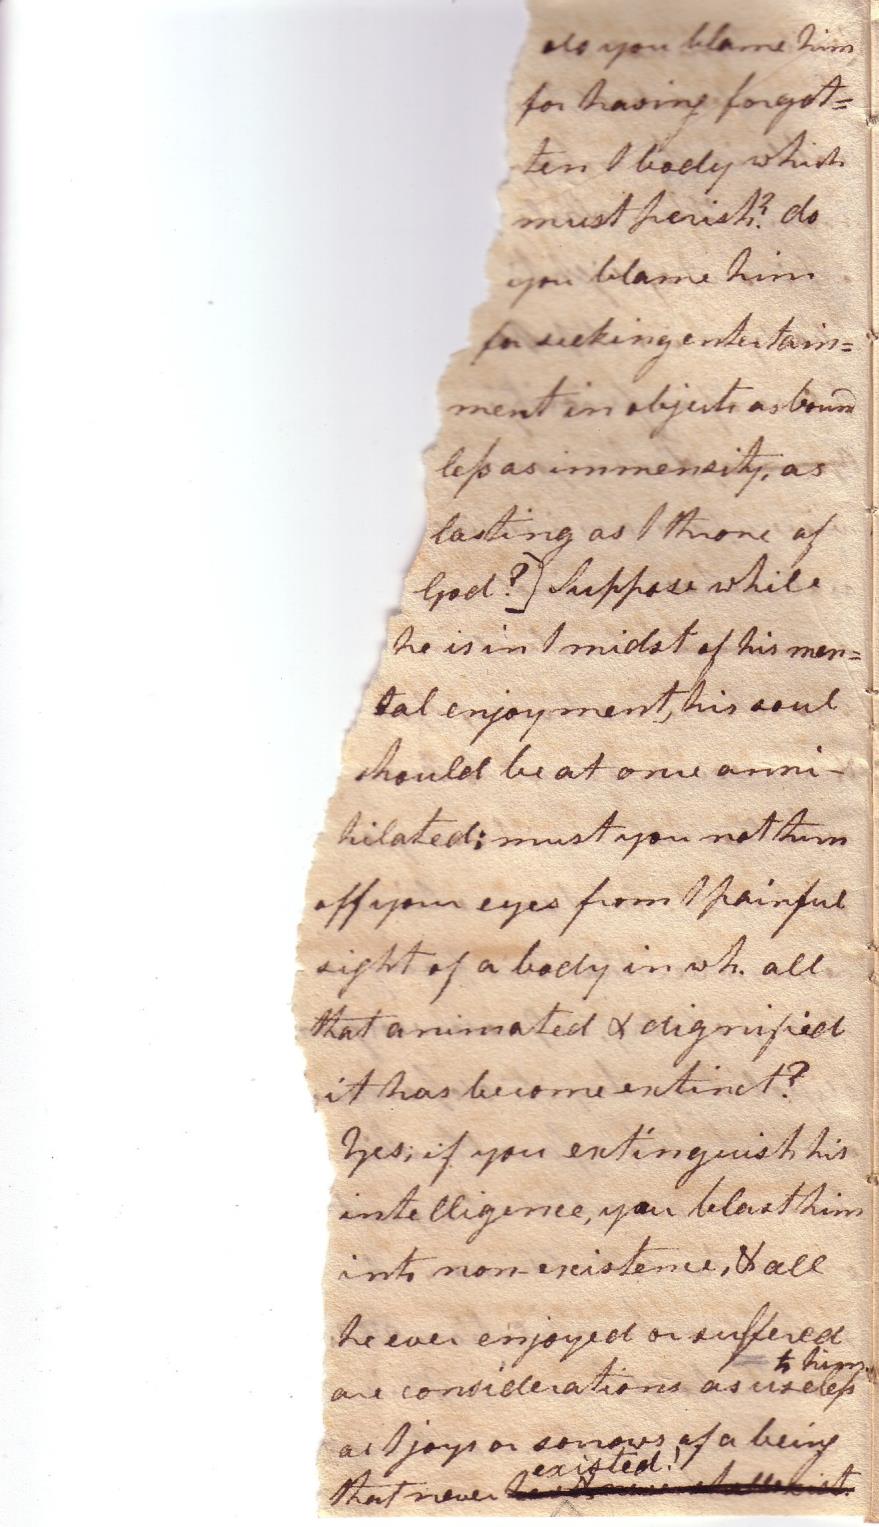 do you blame him
for having forgot=
ten / body which
must perish? do
you blame him
for seeking entertain=
ment in objects as bound
less as immensity, as
lasting as / throne of
God?] Suppose while
he is in / midst of his men=
tal enjoyment, his soul
should be at once anni-
hilated; must you not turn
off your eyes from / painful
sight of a body in wh. all
that animated & dignified
it has become extinct?
Yes, if you extinguish his
intelligence, you blast him
into non-existence, & all
he ever enjoyed or suffered
to him
are considerations as useless
as / joys or sorrows of a being
existed!
that never